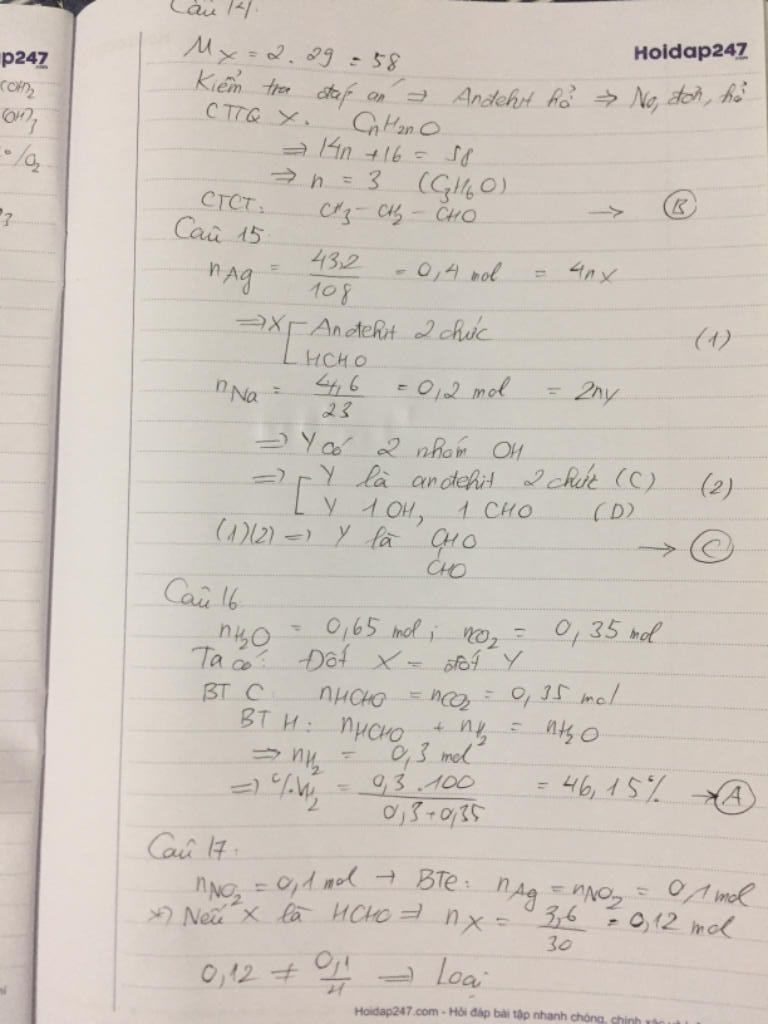 Câu 14.
ap247
.com
Hoidap247
.com
M_X = 2 . 29 = 58
Kiểm tra đáp án ⇒ Andehit hở ⇒ No, đơn, hở
CTTQ X. CnH2nO
⇒ 14n + 16 = 58
⇒ n = 3 (C3H6O)
CTCT: CH3 - CH2 - CHO → B
Câu 15
nAg = 43,2/108 = 0,4 mol = 4nX
⇒ X [ Andehit 2 chức (1)
HCHO
nNa = 4,6/23 = 0,2 mol = 2ny
⇒ Y có 2 nhóm OH
⇒ [ Y là andehit 2 chức (C) (2)
Y 1 OH, 1 CHO (D)
(1)(2) ⇒ Y là CHO → C
CHO
Câu 16
nH2O = 0,65 mol ; nCO2 = 0,35 mol
Ta có: Đốt X = đốt Y
BT C: nHCHO = nCO2 = 0,35 mol
BT H: nHCHO + nH2 = nH2O
⇒ nH2 = 0,3 mol
⇒ %VH2 = 0,3 . 100/0,3 + 0,35 = 46,15% → A
Câu 17.
nNO2 = 0,1 mol → BTe: nAg = nNO2 = 0,1 mol
*) Nếu X là HCHO ⇒ nX = 3,6/30 = 0,12 mol
0,12 ≠ 0,1/4 ⇒ Loại
Hoidap247.com - Hỏi đáp bài tập nhanh chóng, chính xác